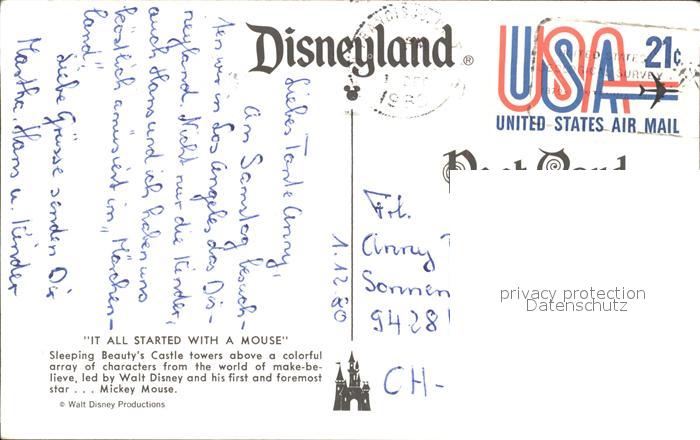 Disneyland®
USA 21c
UNITED STATES AIR MAIL
1980
Post Card
1.12.80
Liebes Tante Anny,
Am Samstag besuch-
ten wir in Los Angeles das Dis-
neyland. Nicht nur die Kinder,
auch Hans und ich haben uns
köstlich amüsiert im "Märchen-
land".
Liebe Grüsse senden Dir
Martha, Hans u. Kinder
Frl.
Anny
Sonnen
9428
CH-
privacy protection
Datenschutz
"IT ALL STARTED WITH A MOUSE"
Sleeping Beauty's Castle towers above a colorful
array of characters from the world of make-be-
lieve, led by Walt Disney and his first and foremost
star . . . Mickey Mouse.
© Walt Disney Productions